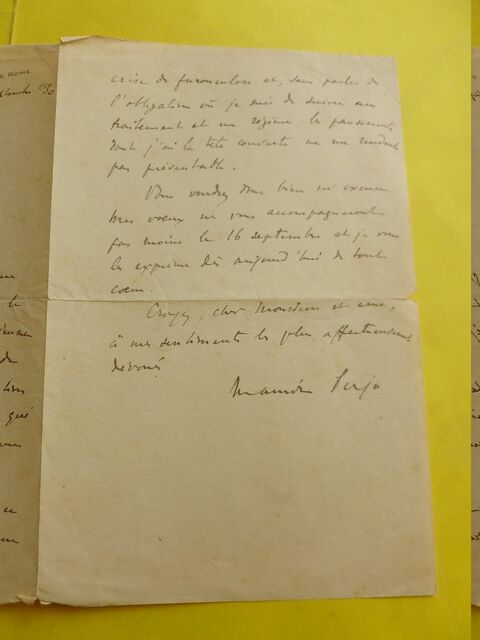 E ROME
crise de furonculose et, sans parler de
l'obligation où je suis de suivre un
traitement et un régime, les pansements
dont j'ai la tête couverte ne me rendent
pas présentable.
Vous voudrez donc bien m'excuser.
Mes vœux ne vous accompagneront
pas moins le 16 septembre et je vous
les exprime dès aujourd'hui de tout
cœur.
Croyez, cher Monsieur et ami,
à mes sentiments les plus affectueusement
dévoués
Maurice